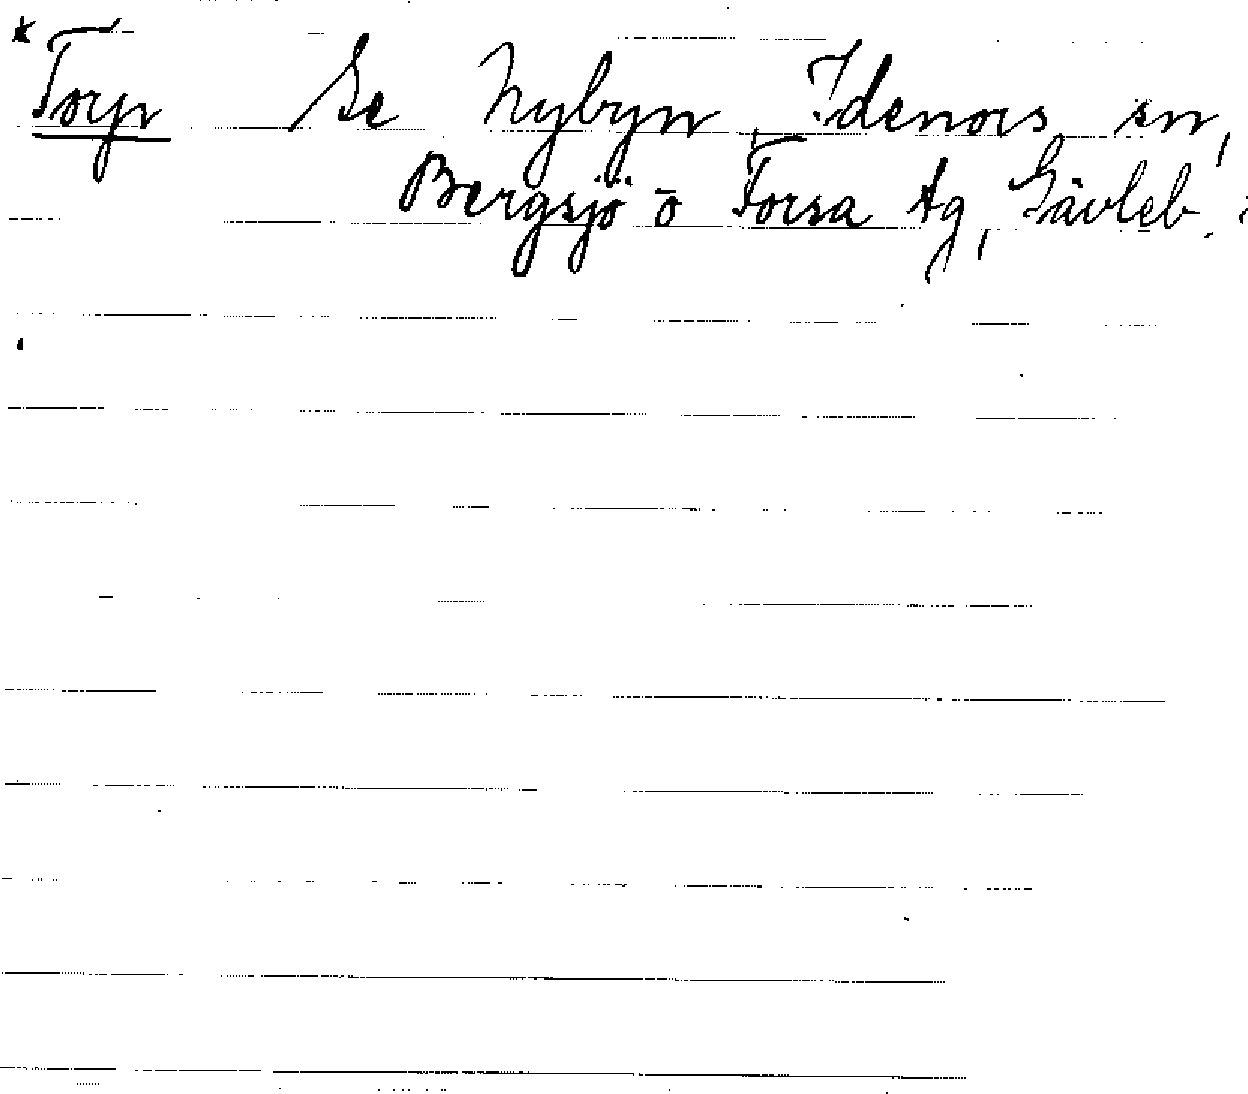 *Torp Se Nybyn, Idenors sn,
Bergsjö o Forsa tg, Gävleb.